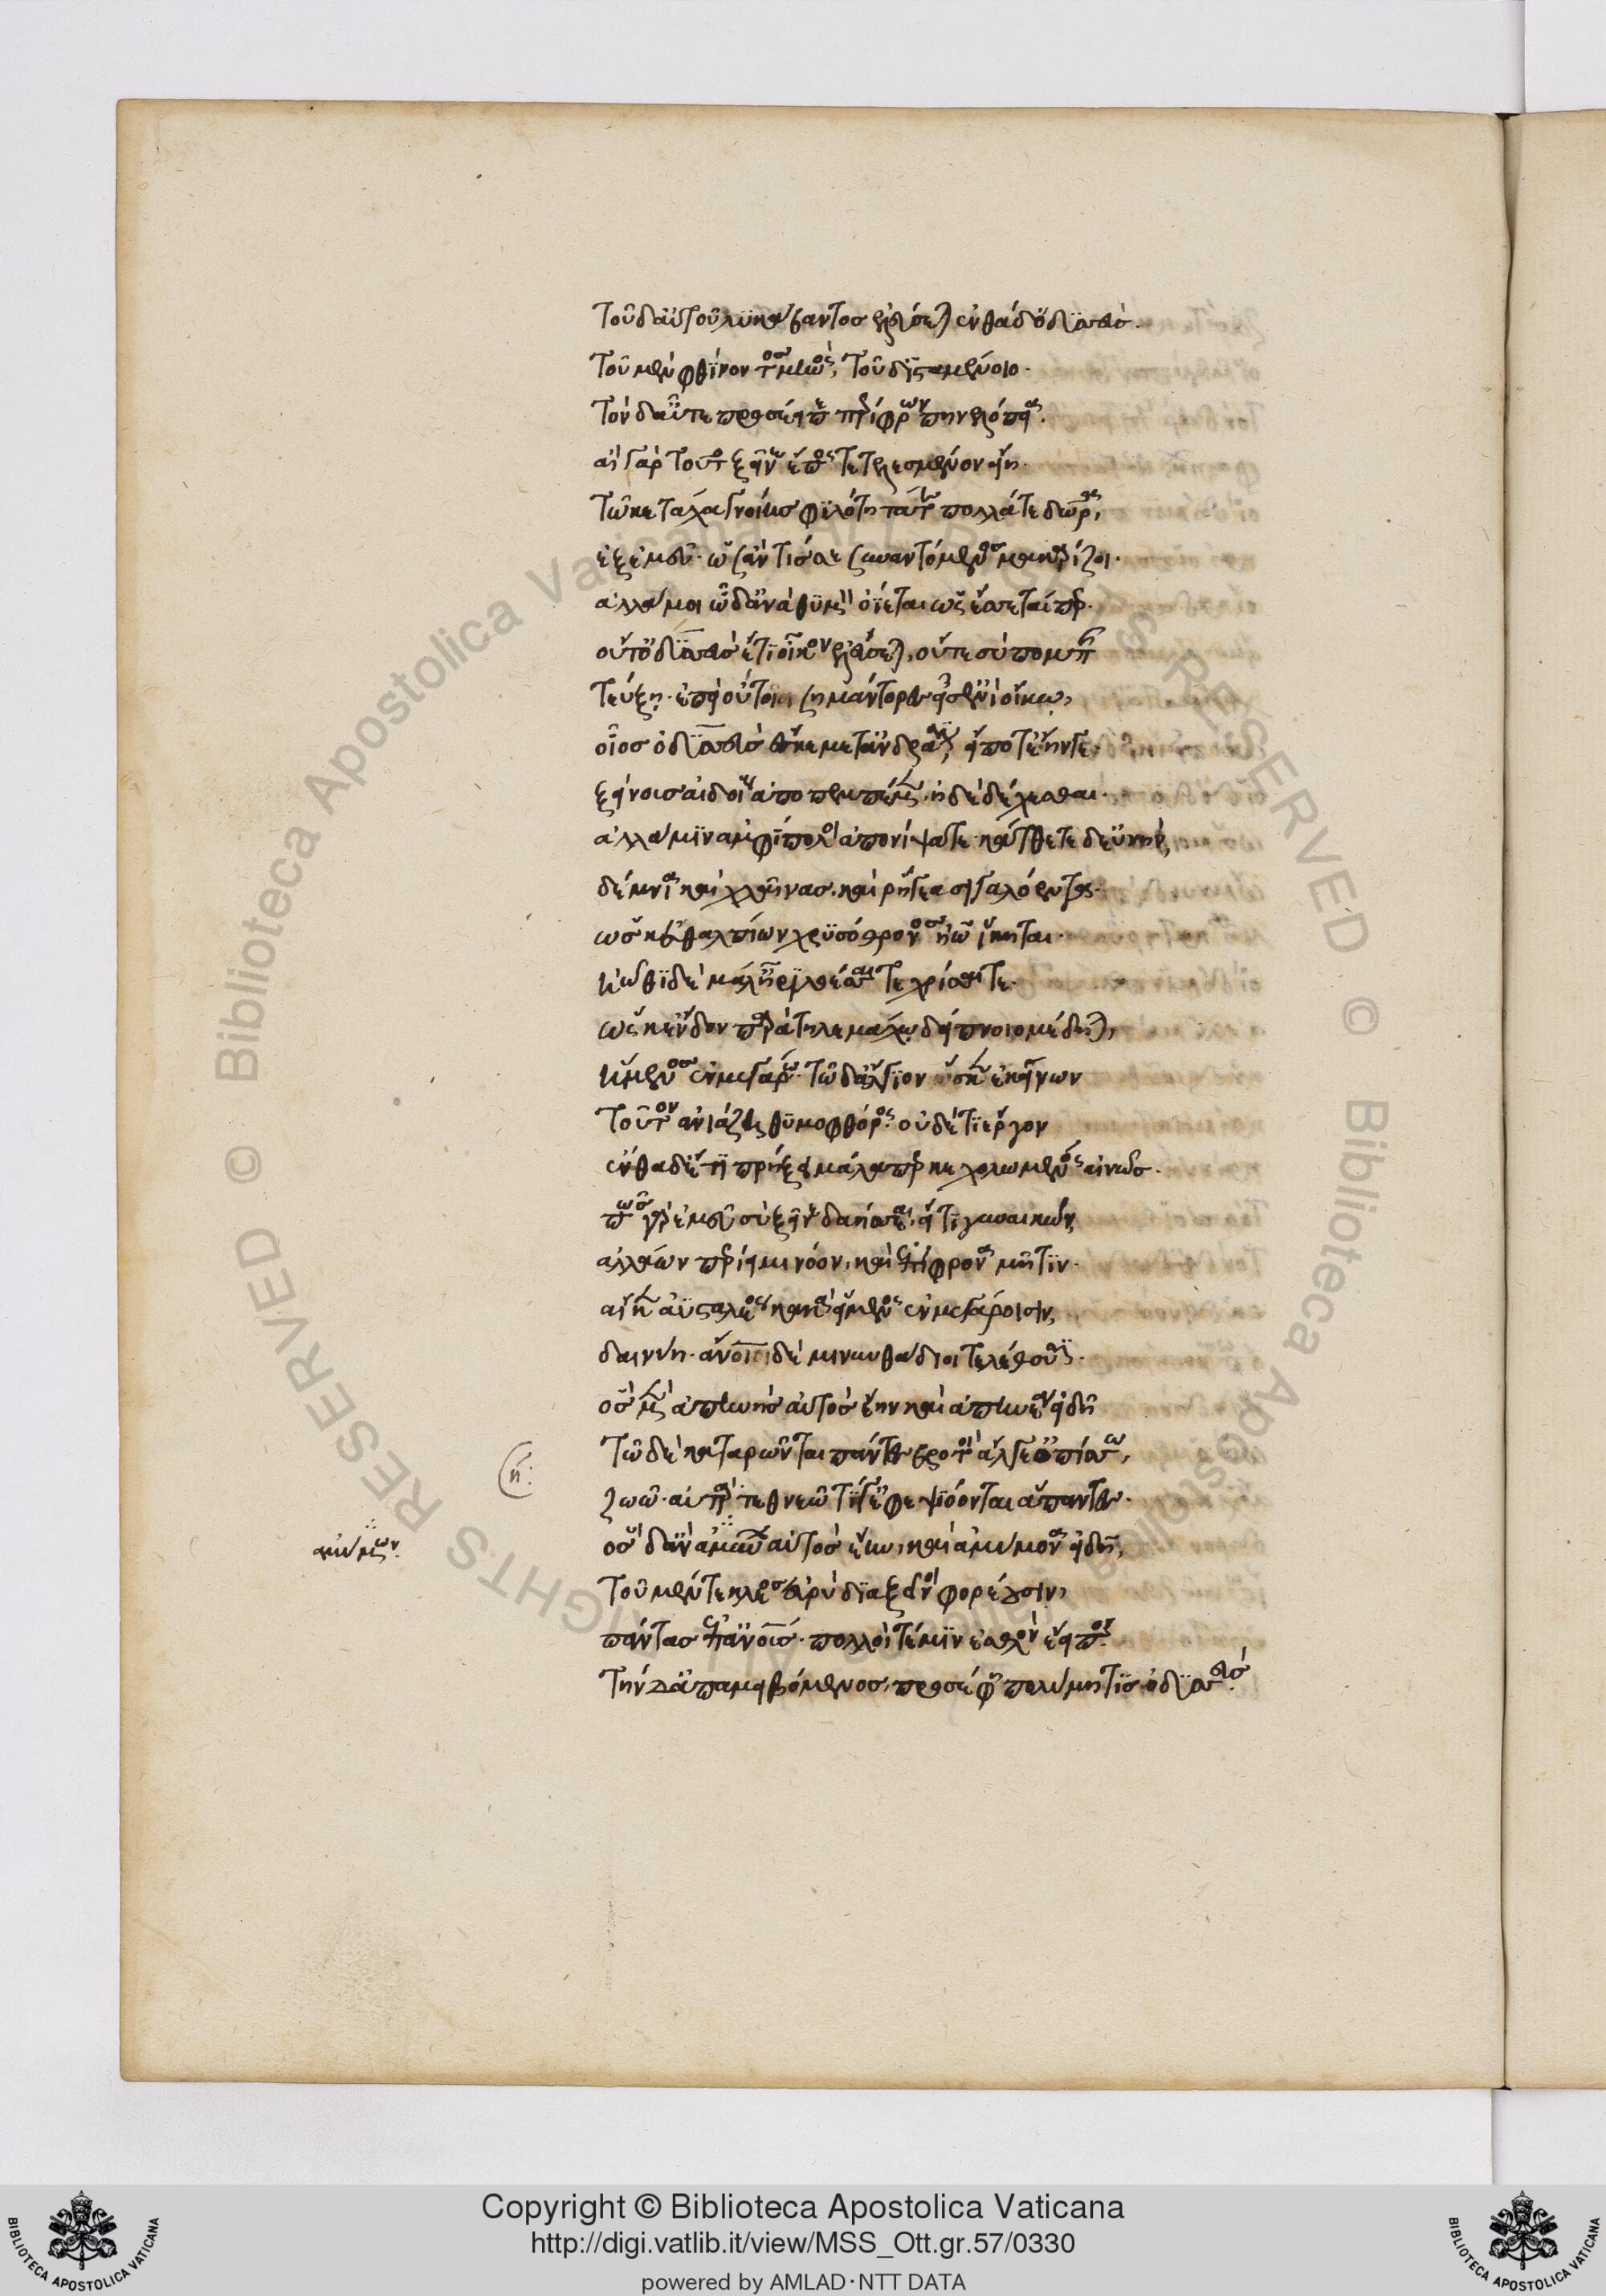 τοῦδ' αὐτοῦ λυκάβαντος ἐλεύσεται ἐνθάδ' ὀδυσσεύς.
τοῦ μὲν φθίνοντος μηνὸς, τοῦ δ' ἱσταμένοιο.
τὸν δ' αὖτε προσέειπε περίφρων πηνελόπεια.
αἲ γὰρ τοῦτο ξεῖνε ἔπος τετελεσμένον εἴη.
τῶ κε τάχα γνοίης φιλότητά τε πολλά τε δῶρα,
ἐξ ἐμεῦ· ὡς ἄν τίς σε συναντόμενος μακαρίζοι.
ἀλλά μοι ὧδ' ἀνὰ θυμὸν ὀΐεται ὡς ἔσεταί περ.
οὔτ' ὀδυσσεὺς ἔτι οἶκον ἐλεύσεται, οὔτε σὺ πομπῆς
τεύξῃ· ἐπεὶ οὐ τοῖοι σημάντορές εἰσ' ἐνὶ οἴκῳ,
οἷος ὀδυσσεὺς ἔσκε μετ' ἀνδράσιν, εἴ ποτ' ἔην γε.
ξείνους αἰδοίους ἀποπεμπέμεν ἠδὲ δέχεσθαι.
ἀλλά μιν ἀμφίπολοι ἀπονίψατε· κάτθετε δ' εὐνήν,
δέμνια καὶ χλαίνας καὶ ῥήγεα σιγαλόεντα.
ὥς κ' εὖ θαλπιόων χρυσόθρονον ἠῶ ἵκηται.
ἠῶθι δὲ μάλ' ἦρι λοέσσαι τε χρῖσαί τε.
ὥς κ' ἔνδον παρὰ τηλεμάχῳ δείπνοιο μέδηται,
ἥμενος ἐν μεγάρῳ. τῷ δ' ἄλγιον ὅς κεν ἐκείνων
τοῦτον ἀνιάζῃ θυμοφθόρος· οὐδέ τι ἔργον
ἐνθάδ' ἔτι πρήξει μάλα περ κεχολωμένος αἰνῶς.
πῶς γὰρ ἐμεῦ σὺ ξεῖνε δαήσεαι, εἴ τι γυναικῶν,
ἀλλάων περίειμι νόον, καὶ ἐπίφρονα μῆτιν.
αἴ κεν ἀϋσταλέος κακὰ εἱμένος ἐν μεγάροισιν,
δαινύῃ. ἄνθρωποι δὲ μινυνθάδιοι τελέθουσιν.
ὃς μὲν ἀπηνὴς αὐτὸς ἔῃ καὶ ἀπηνέα εἰδῇ
τῷ δὲ καταρῶνται πάντες βροτοὶ ἄλγε' ὀπίσσω,
ζωῷ· ἀτὰρ τεθνεῶτί γ' ἐφεψιόωνται ἅπαντες.
ὃς δ' ἂν ἀμύμων αὐτὸς ἔῃ, καὶ ἀμύμονα εἰδῇ,
ἀμύμων.
τοῦ μέν τε κλέος εὐρὺ διὰ ξεῖνοι φορέουσιν,
πάντας ἐπ' ἀνθρώπους. πολλοί τέ μιν ἐσθλὸν ἔειπον.
τὴν δ' ἀπαμειβόμενος, προσέφη πολύμητις ὀδυσσεύς.
Copyright © Biblioteca Apostolica Vaticana
http://digi.vatlib.it/view/MSS_Ott.gr.57/0330
powered by AMLAD·NTT DATA